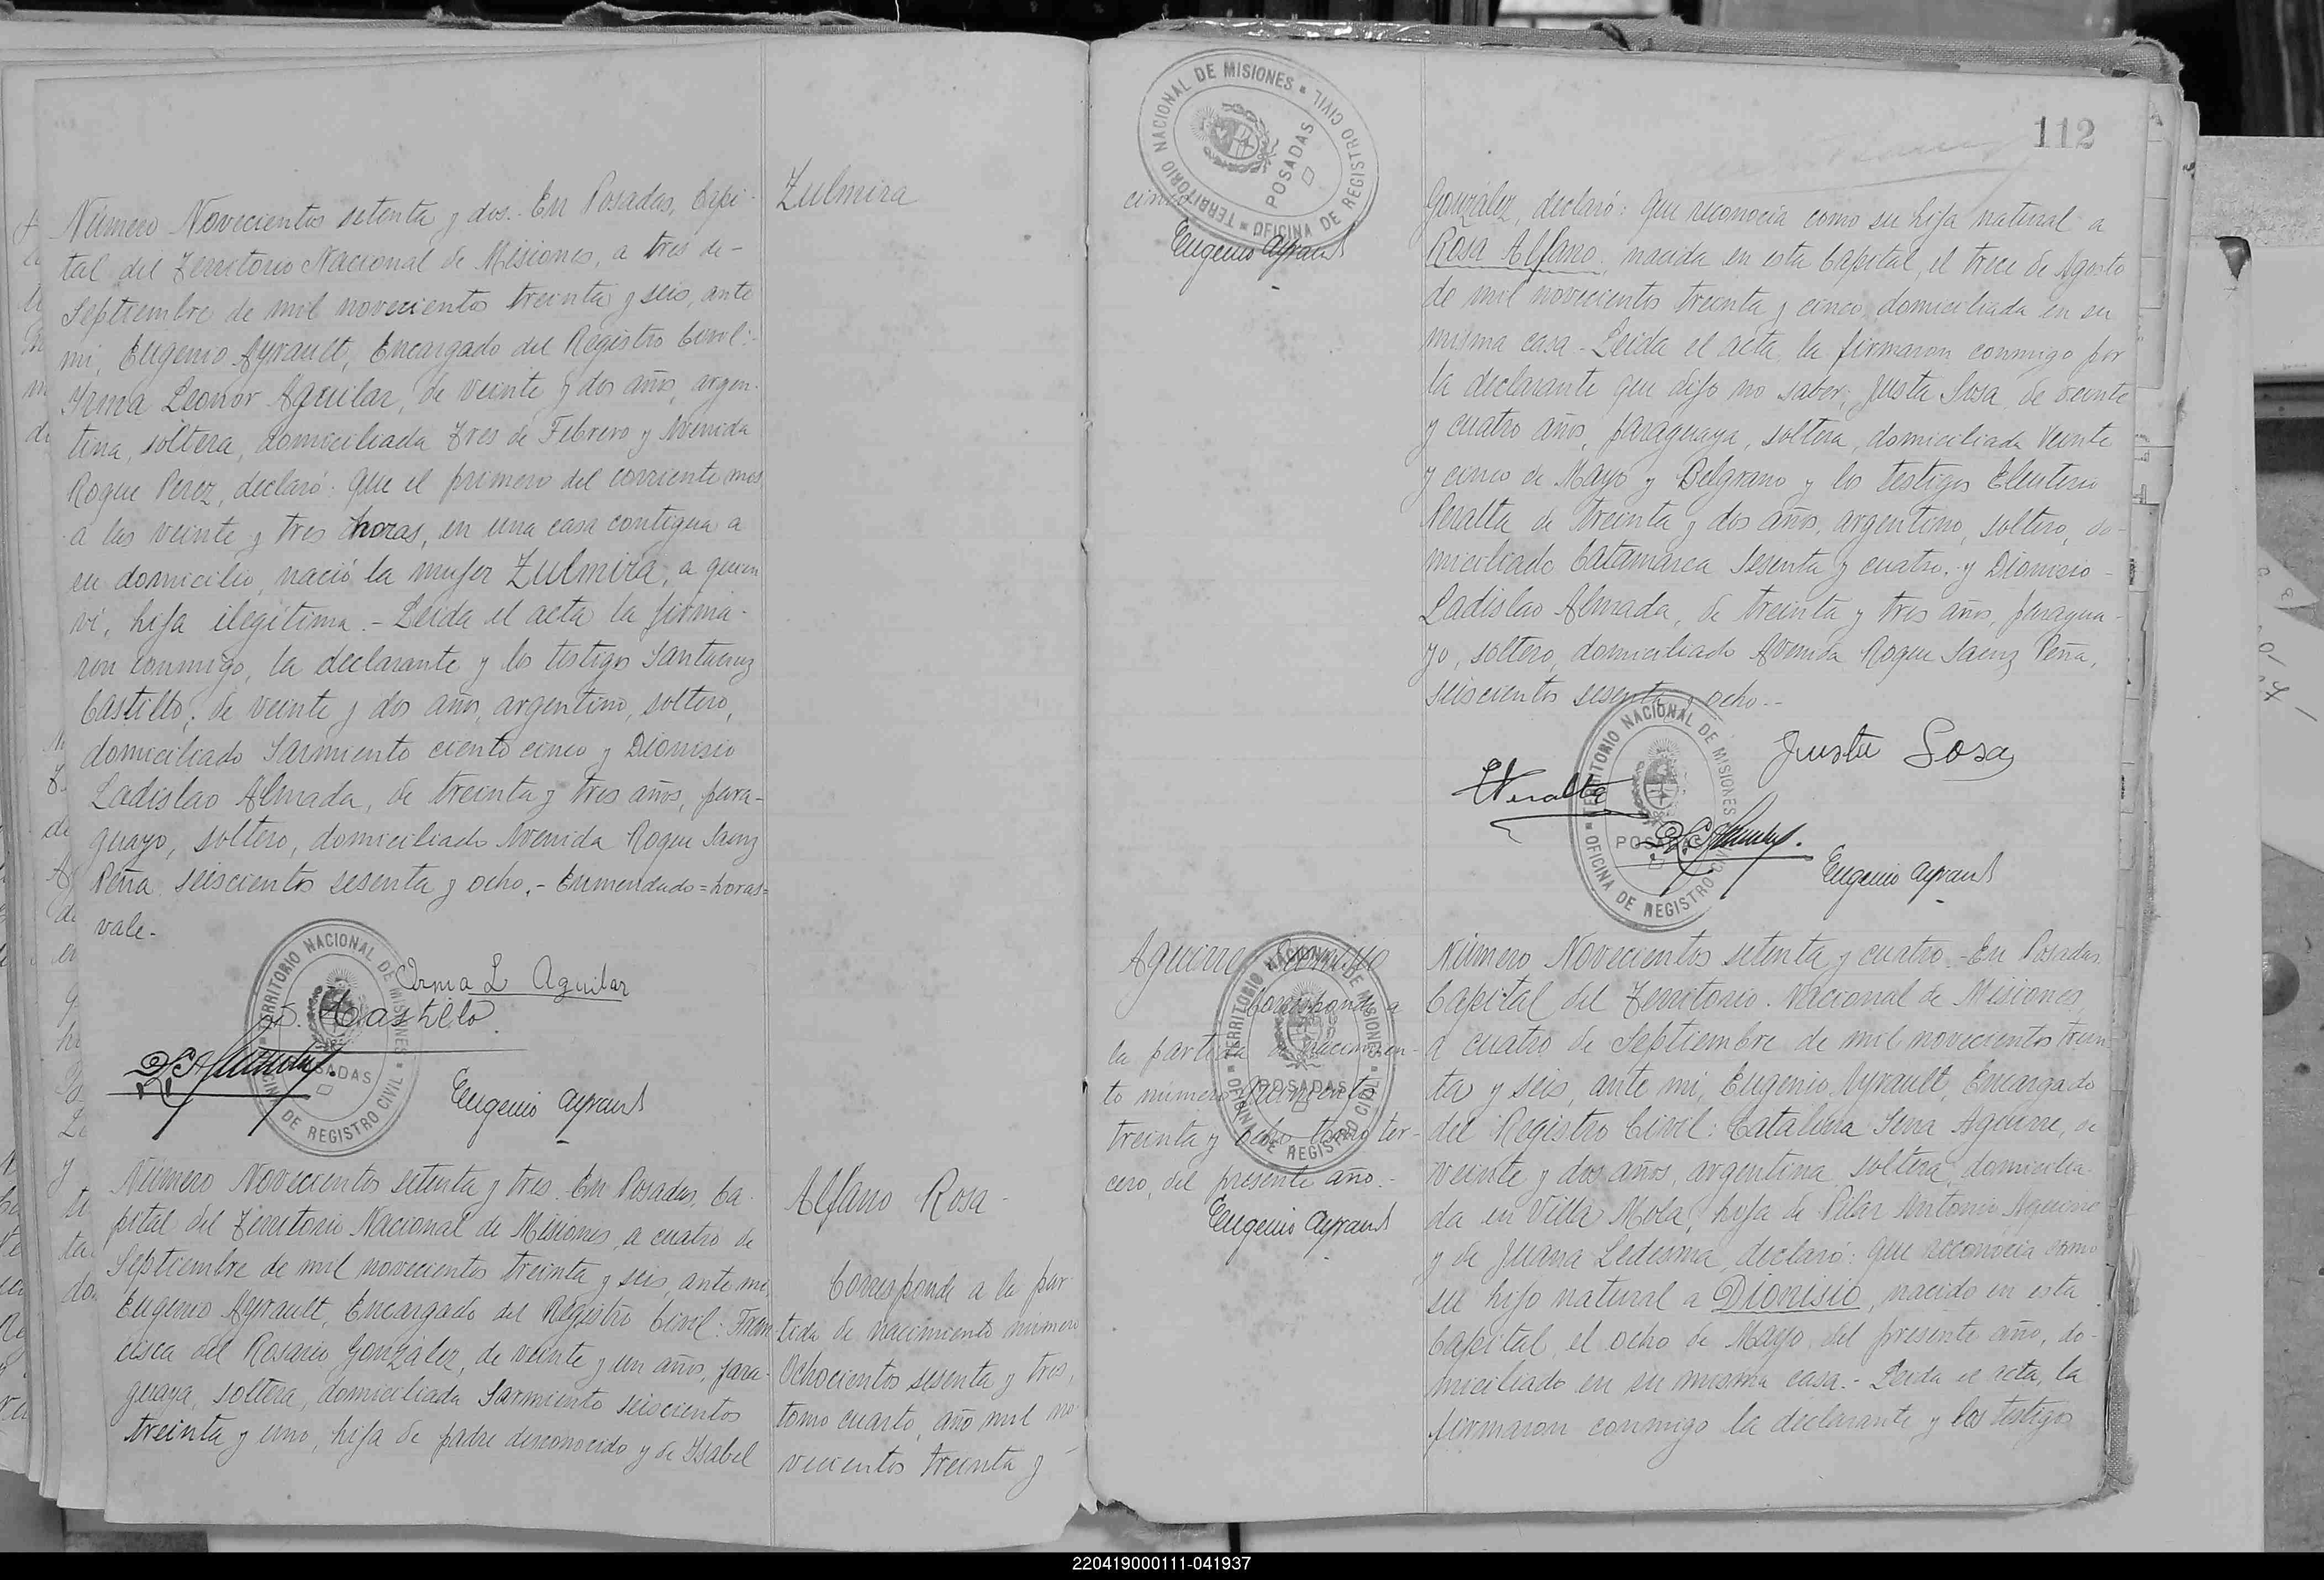 Número Novecientos setenta y dos.- En Posadas, Capi-
tal del Territorio Nacional de Misiones, a tres de-
Septiembre de mil novecientos treinta y seis, ante
mi, Eugenio Ayrault, Encargado del Registro Civil:-
Yrma Leonor Aguilar, de veinte y dos años, argen-
tina, soltera, domiciliada Tres de Febrero y Avenida
Roque Perez, declaró: Que el primero del corriente mes
a las veinte y tres horas, en una casa contigua a
su domicilio, nació la mujer Zulmira, a quien
vi, hija ilegítima.- Leída el acta la firma-
ron conmigo, la declarante y los testigos Santacruz
Castillo, de veinte y dos años, argentino, soltero,
domiciliado Sarmiento ciento cinco y Dionisio
Ladislao Almada, de treinta y tres años, para-
guayo, soltero, domiciliado Avenida Roque Saenz
Peña seiscientos sesenta y ocho.- Enmendado=horas=
vale-
Zulmira
TERRITORIO NACIONAL DE MISIONES
OFICINA DE REGISTRO CIVIL
POSADAS
Irma L Aguilar
S. Castillo
Eugenio Ayrault
Número Novecientos setenta y tres. En Posadas, Ca-
pital del Territorio Nacional de Misiones, a cuatro de
Septiembre de mil novecientos treinta y seis, ante mi,
Eugenio Ayrault, Encargado del Registro Civil: Fran-
cisca del Rosario González, de veinte y un años, para-
guaya, soltera, domiciliada Sarmiento seiscientos
treinta y uno, hija de padre desconocido y de Ysabel
Alfano Rosa-
Corresponde a la par-
tida de nacimiento número
Ochocientos sesenta y tres,
tomo cuarto, año mil no-
vecientos treinta y
cinco
TERRITORIO NACIONAL DE MISIONES
OFICINA DE REGISTRO CIVIL
POSADAS
Eugenio Ayrault
112
González, declaró: Que reconocía como su hija natural a
Rosa Alfano, nacida en esta Capital, el trece de Agosto
de mil novecientos treinta y cinco, domiciliada en su
misma casa.- Leída el acta, la firmaron conmigo por
la declarante que dijo no saber, Justa Sosa, de veinte
y cuatro años, paraguaya, soltera, domiciliada Veinte
y cinco de Mayo y Belgrano y los testigos Eleuterio
Peralta de treinta y dos años, argentino, soltero, do-
miciliado Catamarca sesenta y cuatro, y Dionisio-
Ladislao Almada, de treinta y tres años, paragua-
yo, soltero, domiciliado Avenida Roque Saenz Peña,
seiscientos sesenta y ocho.-
Justa Sosa
TERRITORIO NACIONAL DE MISIONES
OFICINA DE REGISTRO CIVIL
POSADAS
EPeralta
Eugenio Ayrault
Aguirre Dionisio
Corresponde a
la partida de nacimien-
to número Quinientos
treinta y ocho tomo ter-
cero, del presente año.-
Eugenio Ayrault
TERRITORIO NACIONAL DE MISIONES
OFICINA DE REGISTRO CIVIL
POSADAS
Número Novecientos setenta y cuatro.- En Posadas
Capital del Territorio Nacional de Misiones
a cuatro de Septiembre de mil novecientos trein-
ta y seis, ante mi, Eugenio Ayrault, Encargado
del Registro Civil: Catalina Sena Aguirre, de
veinte y dos años, argentina, soltera, domicilia-
da en Villa Mola, hija de Pilar Antonio Aguirre
y de Juana Ledesma, declaró: que reconocía como
su hijo natural a Dionisio, nacido en esta
Capital, el ocho de Mayo del presente año, do-
miciliado en su misma casa.- Leída el acta, la
firmaron conmigo la declarante y los testigos
220419000111-041937